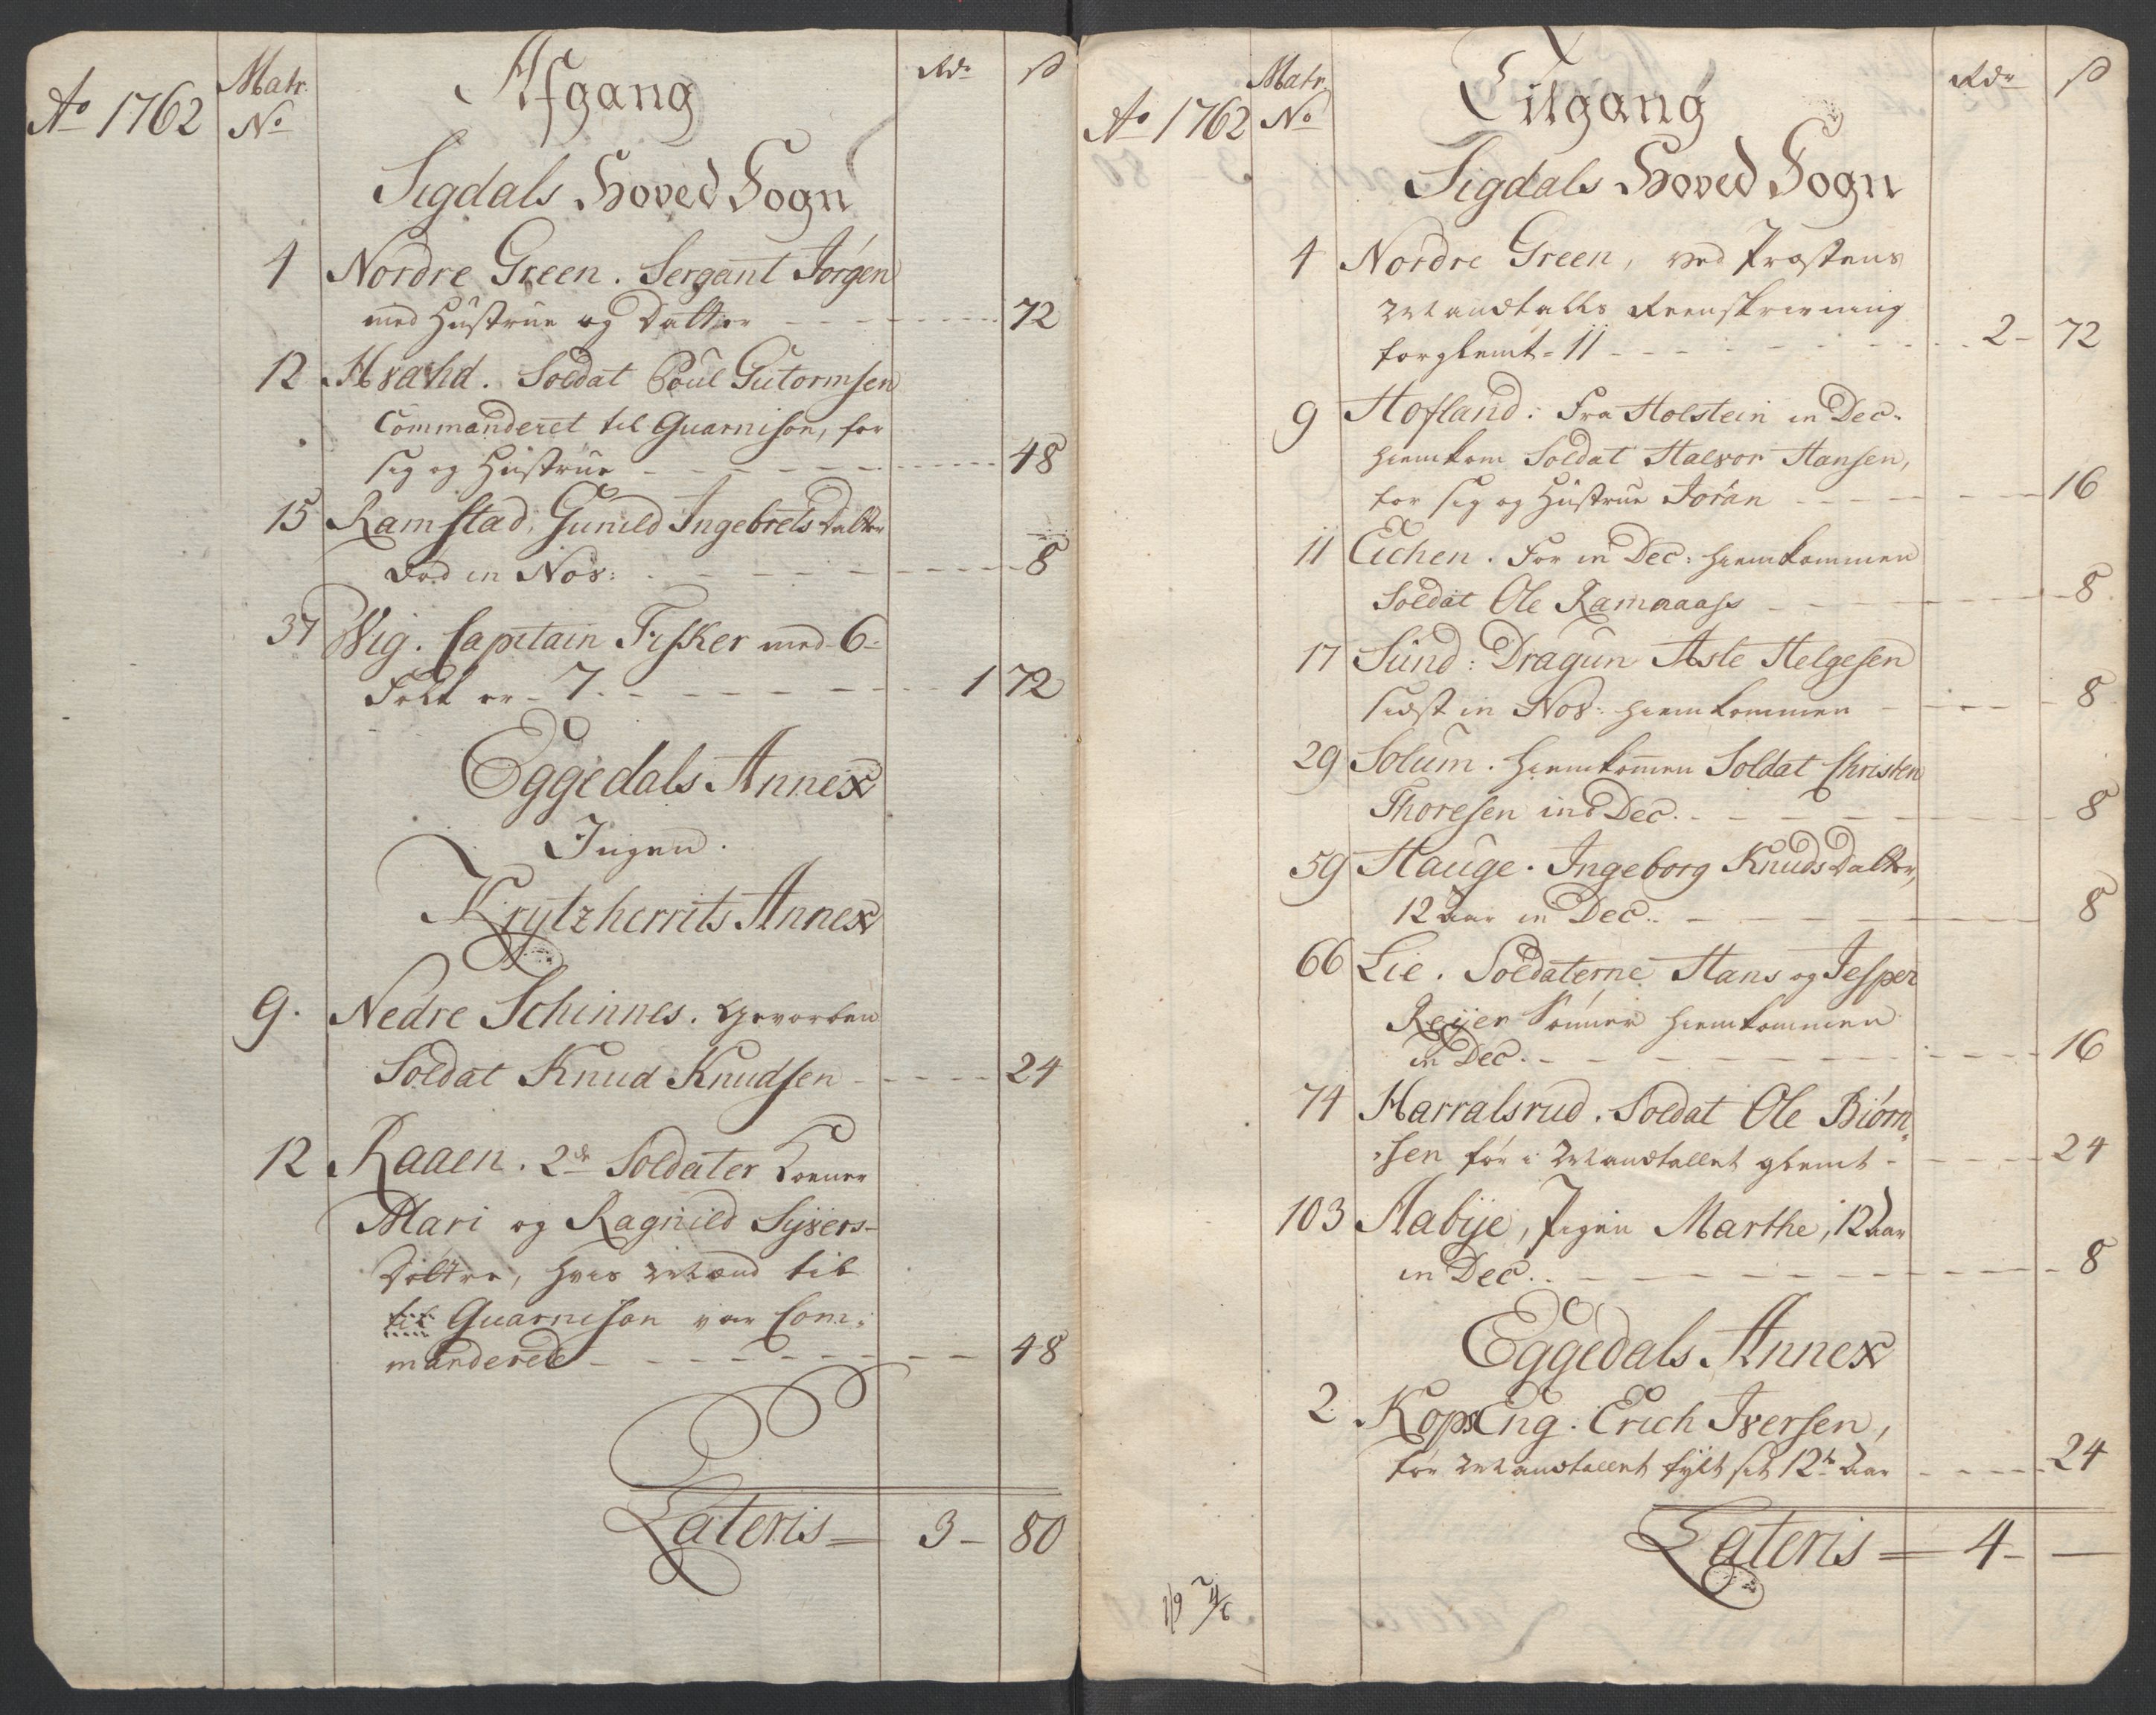 Ao 1762
Matr. No
Afgang
Rdr ß
Sigdals Hoved Sogn
4 Nordre Green. Sergant Jörgen
med Hustrue og Datter - - - 72
12 Hvahd. Soldat Poul Gutormsen
Commanderet til Guarnison, for
sig og Hustrue - - - 48
15 Ramstad. Gunild Ingebrets Datter
död in Nov: - - - 8
37 Wig. Capitain Fisker med 6-
Folk er - 7 - - - 1 72
Eggedals Annex
Ingen.
Krytzherrits Annex
9. Nedre Schinnes. Gevorben
Soldat Knud Knudsen - - - 24
12 Raaen. 2de Soldater Koener
Mari og Ragnild Syvers-
Döttre, hvis Mænd til
til Guarnison var Com-
manderede - - - 48
Lateris = 3 - 80
Ao 1762
Matr. No
Tilgang
Rdr ß
Sigdals Hoved Sogn
4 Nordre Green, ved Præstens
Mandtalls Reenskrivning
forglemt - 11 - - - 2 - 72
9 Hofland: Fra Holstein in Dec:
hiemkom Soldat Halvor Hansen,
for sig og Hustrue Joran - - - 16
11 Eichen. For in Dec: hiemkommen
Soldat Ole Ramnaass - - - 8
17 Sund: Dragun Asle Helgesen
sidst in Nov: hiemkommen - - - 8
29 Solum. hiemkommen Soldat Christen
Thoresen in Dec. - - - 8
59 Hauge. Ingeborg Knuds Datter,
12 Aar in Dec. - - - 8
66 Lie. Soldaterne Hans og Jesper
Reyer Sönner hiemkommen
in Dec. - - - 16
74 Harralsrud. Soldat Ole Biörn-
-sen för i Mandtallet glemt - - - 24
103 Aabye, Pigen Marthe, 12 Aar
in Dec. - - - 8
Eggedals Annex
2. KopsEng. Erich Iversen,
för Mandtallet fylt sit 12te Aar - - - 24
Lateris = 4 - —